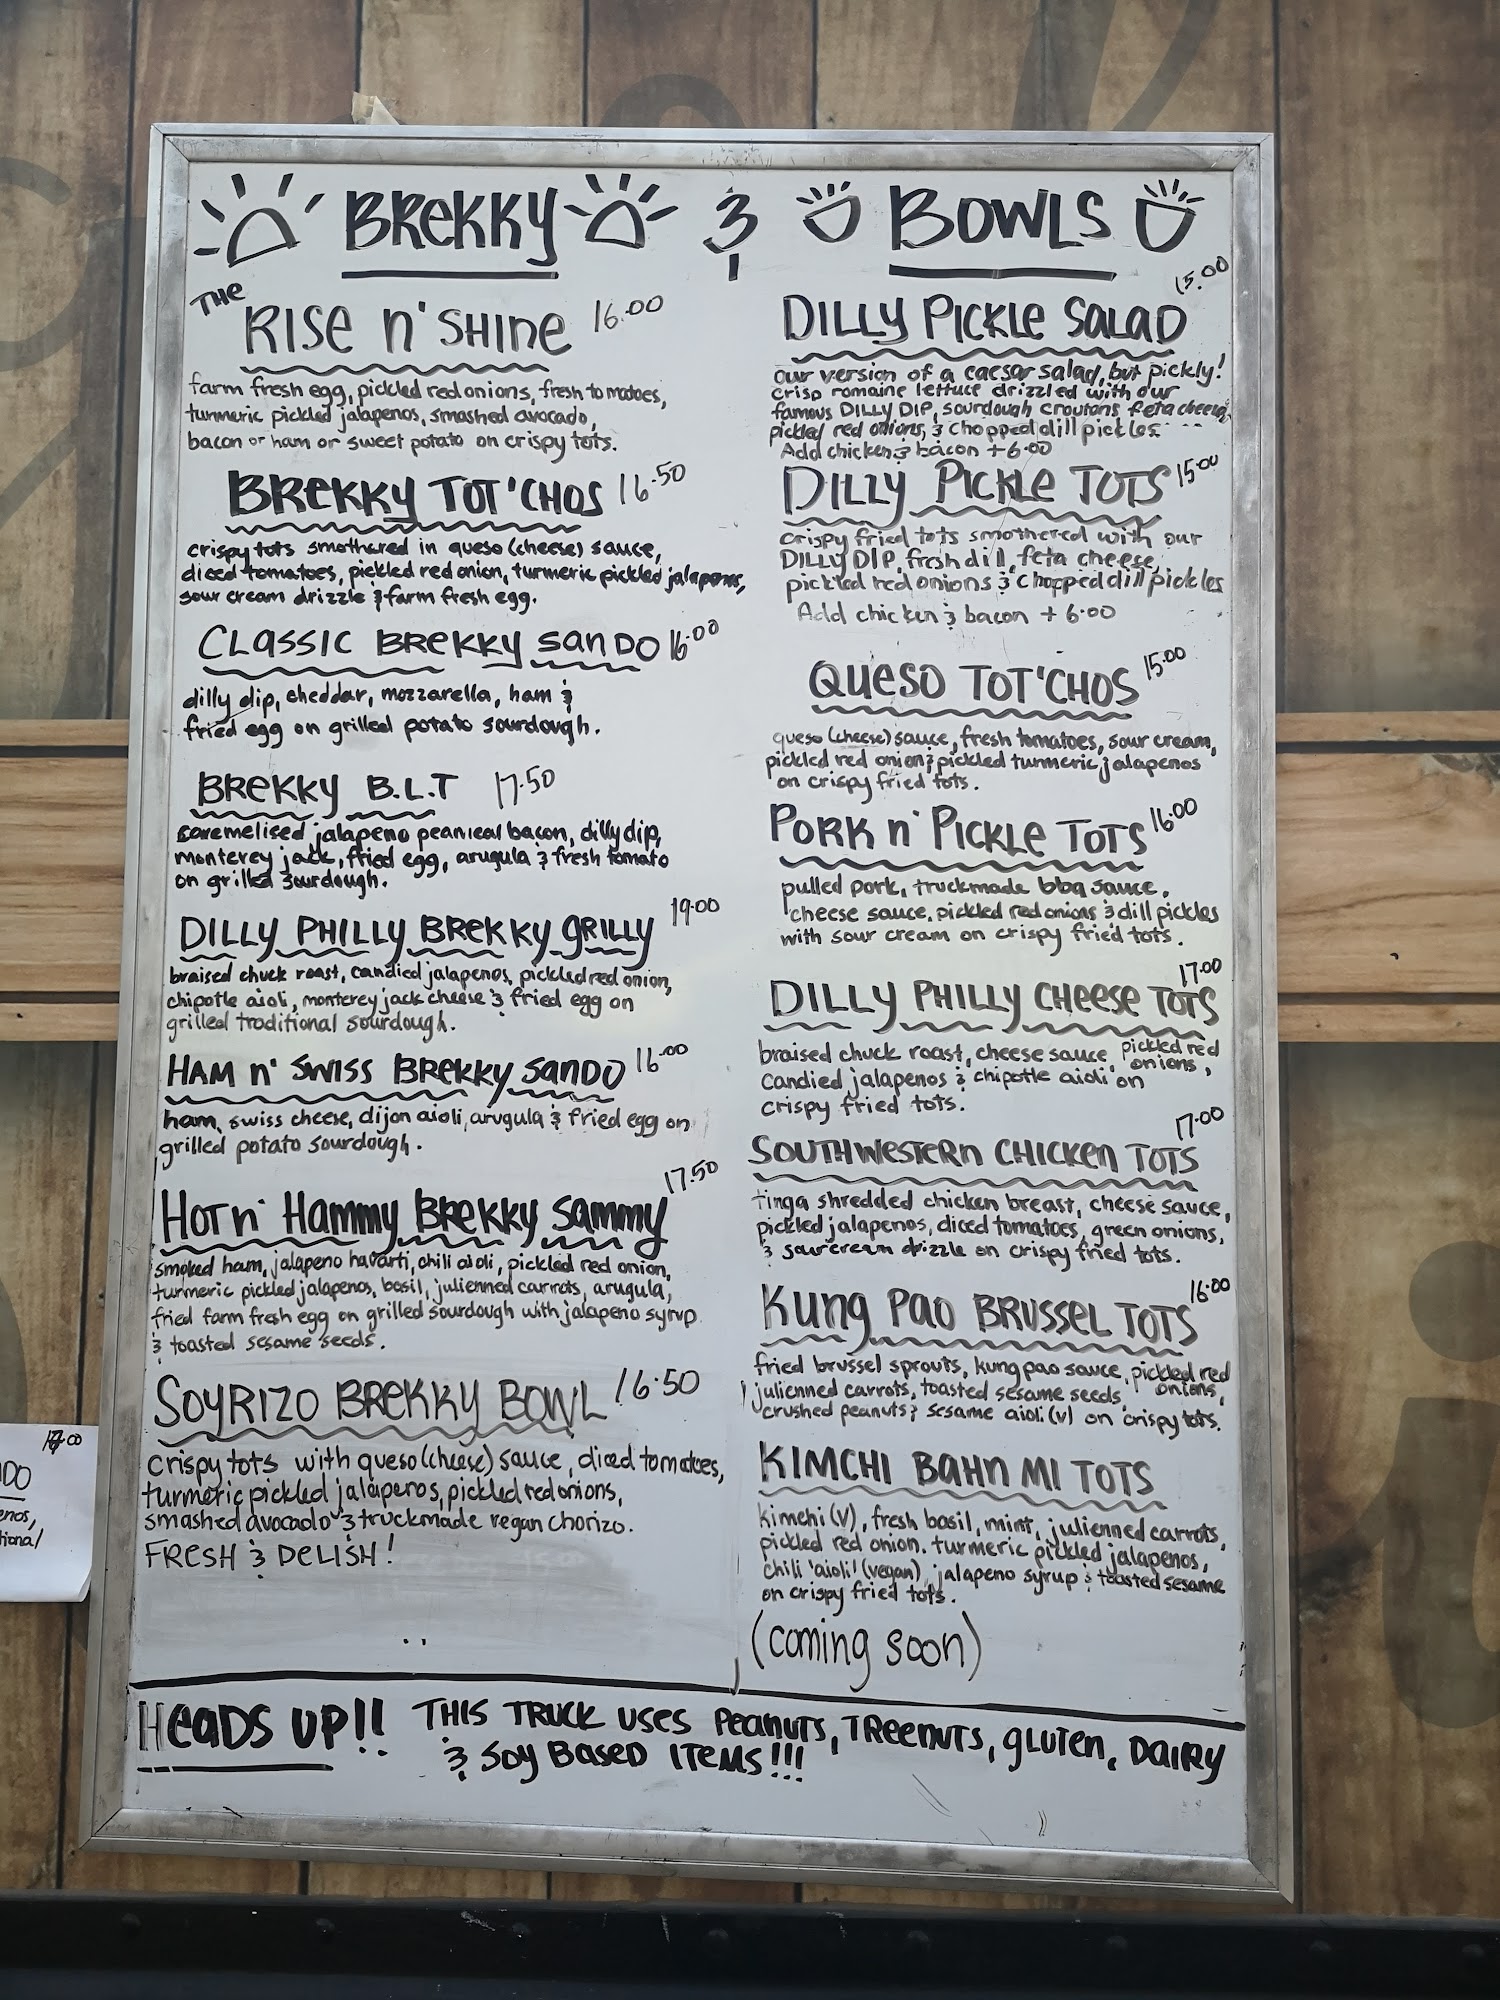 BREKKY & BOWLS
THE
RISE N' SHINE 16.00
farm fresh egg, pickled red onions, fresh tomatoes,
turmeric pickled jalapenos, smashed avocado,
bacon or ham or sweet potato on crispy tots.
BREKKY TOT'CHOS 16.50
crispy tots smothered in queso (cheese) sauce,
diced tomatoes, pickled red onion, turmeric pickled jalapenos,
sour cream drizzle & farm fresh egg.
CLASSIC BREKKY SANDO 16.00
dilly dip, cheddar, mozzarella, ham &
fried egg on grilled potato sourdough.
BREKKY B.L.T 17.50
caramelised jalapeno peameal bacon, dilly dip,
monterey jack, fried egg, arugula & fresh tomato
on grilled sourdough.
DILLY PHILLY BREKKY GRILLY 19.00
braised chuck roast, candied jalapenos, pickled red onion,
chipotle aioli, monterey jack cheese & fried egg on
grilled traditional sourdough.
HAM N' SWISS BREKKY SANDO 16.00
ham, swiss cheese, dijon aioli, arugula & fried egg on
grilled potato sourdough.
17.50
HOT N' HAMMY BREKKY SAMMY
smoked ham, jalapeno havarti, chili aioli, pickled red onion,
turmeric pickled jalapenos, basil, julienned carrots, arugula,
fried farm fresh egg on grilled sourdough with jalapeno syrup
& toasted sesame seeds.
SOYRIZO BREKKY BOWL 16.50
crispy tots with queso (cheese) sauce, diced tomatoes,
turmeric pickled jalapenos, pickled red onions,
smashed avocado & truckmade vegan chorizo.
FRESH & DELISH!
15.00
DILLY PICKLE SALAD
our version of a caesar salad, but pickly!
crisp romaine lettuce drizzled with our
famous DILLY DIP, sourdough croutons, feta cheese,
pickled red onions, & chopped dill pickles.
Add chicken & bacon +6.00
DILLY PICKLE TOTS 15.00
crispy fried tots smothered with our
DILLY DIP, fresh dill, feta cheese,
pickled red onions & chopped dill pickles
Add chicken & bacon + 6.00
QUESO TOT'CHOS 15.00
queso (cheese) sauce, fresh tomatoes, sour cream,
pickled red onion & pickled turmeric jalapenos
on crispy fried tots.
PORK N' PICKLE TOTS 16.00
pulled pork, truckmade bbq sauce,
cheese sauce, pickled red onions & dill pickles
with sour cream on crispy fried tots.
17.00
DILLY PHILLY CHEESE TOTS
braised chuck roast, cheese sauce, pickled red onions,
candied jalapenos & chipotle aioli on
crispy fried tots.
17.00
SOUTHWESTERN CHICKEN TOTS
tinga shredded chicken breast, cheese sauce,
pickled jalapenos, diced tomatoes, green onions,
& sour cream drizzle on crispy fried tots.
KUNG PAO BRUSSEL TOTS 16.00
fried brussel sprouts, kung pao sauce, pickled red onions,
julienned carrots, toasted sesame seeds,
crushed peanuts & sesame aioli (v) on crispy tots.
KIMCHI BAHN MI TOTS
kimchi (V), fresh basil, mint, julienned carrots,
pickled red onion, turmeric pickled jalapenos,
chili 'aioli' (vegan), jalapeno syrup & toasted sesame
on crispy fried tots.
(coming soon)
HEADS UP!! THIS TRUCK USES PEANUTS, TREENUTS, GLUTEN, DAIRY
& SOY BASED ITEMS!!!